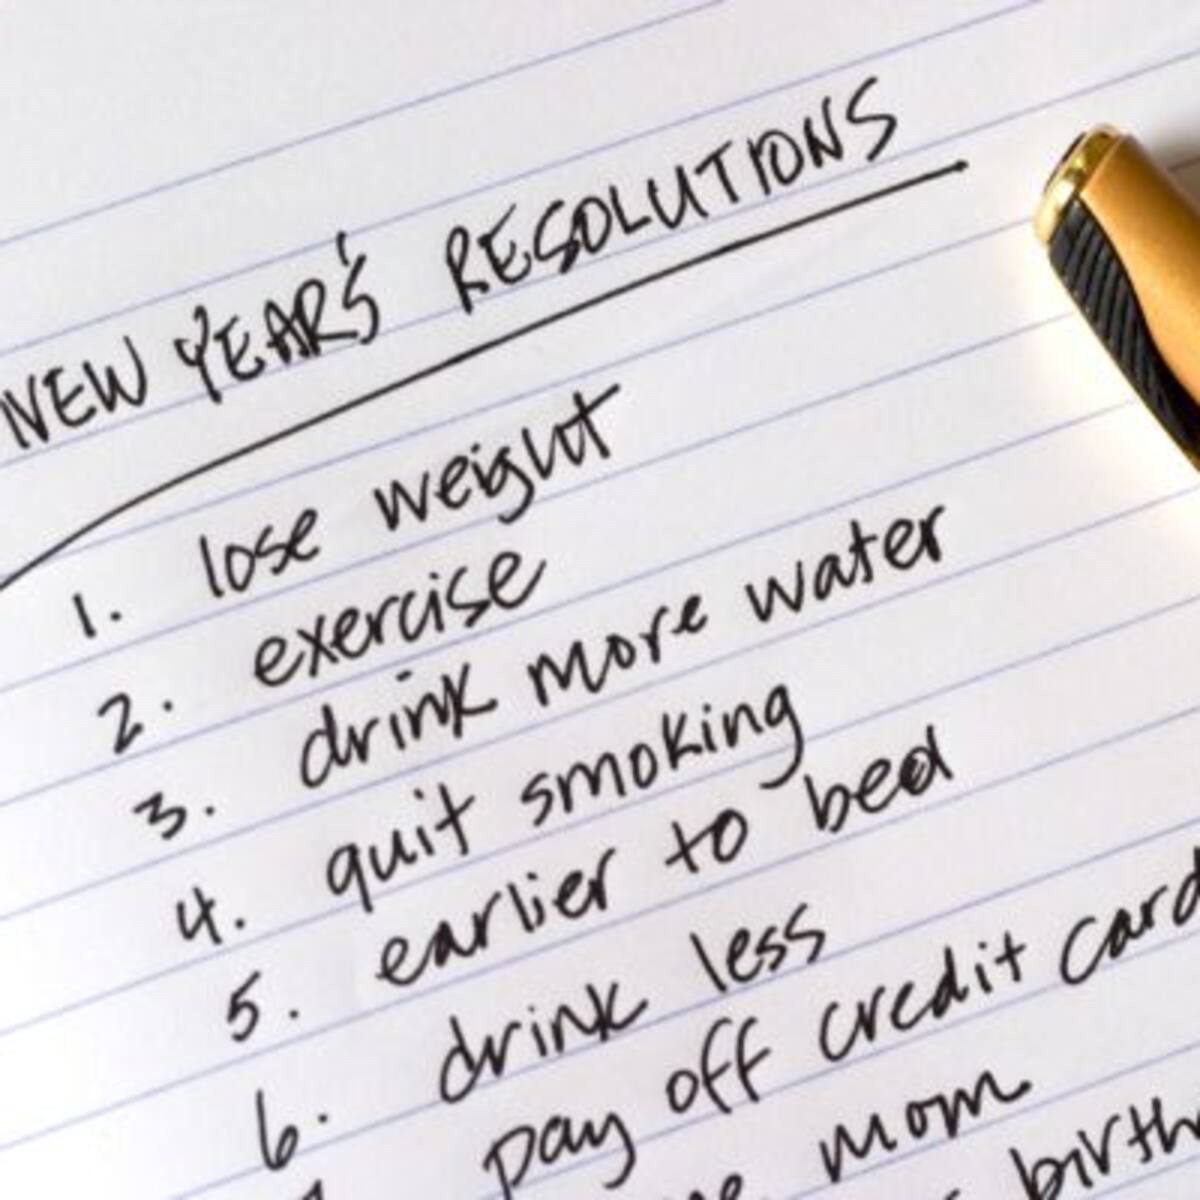 NEW YEAR'S RESOLUTIONS
1. lose weight
2. exercise
3. drink more water
4. quit smoking
5. earlier to bed
6. drink less
pay off credit card
mom